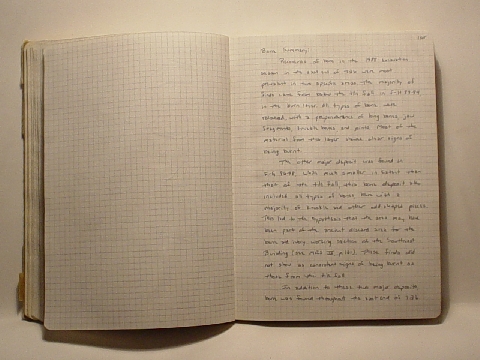 Bone Summary:
Recoveries of bone in the 1988 excavation
season in the east end of were most
prevalent in two specific areas. The majority of
finds came from below the tile fall in
in the burn layer. All types of bone were
recovered, with a preponderance of long bones, jaw
fragments, knuckle bones and joints. Most of the
material from this layer shows clear signs of
being burnt.
The other major deposit was found in
while much smaller in extent than
that of the tile fall, this bone deposit also
included all types of bones but with a
majority of knuckle and other odd shaped pieces.
This led to the hypothesis that the area may have
been part of the product discard site for the
bone and ivory working section of the Southeast
Building These finds did
not show as consistent signs of being burnt as
those from the tile fall.
In addition to these two major deposits
bone was found throughout the east end of